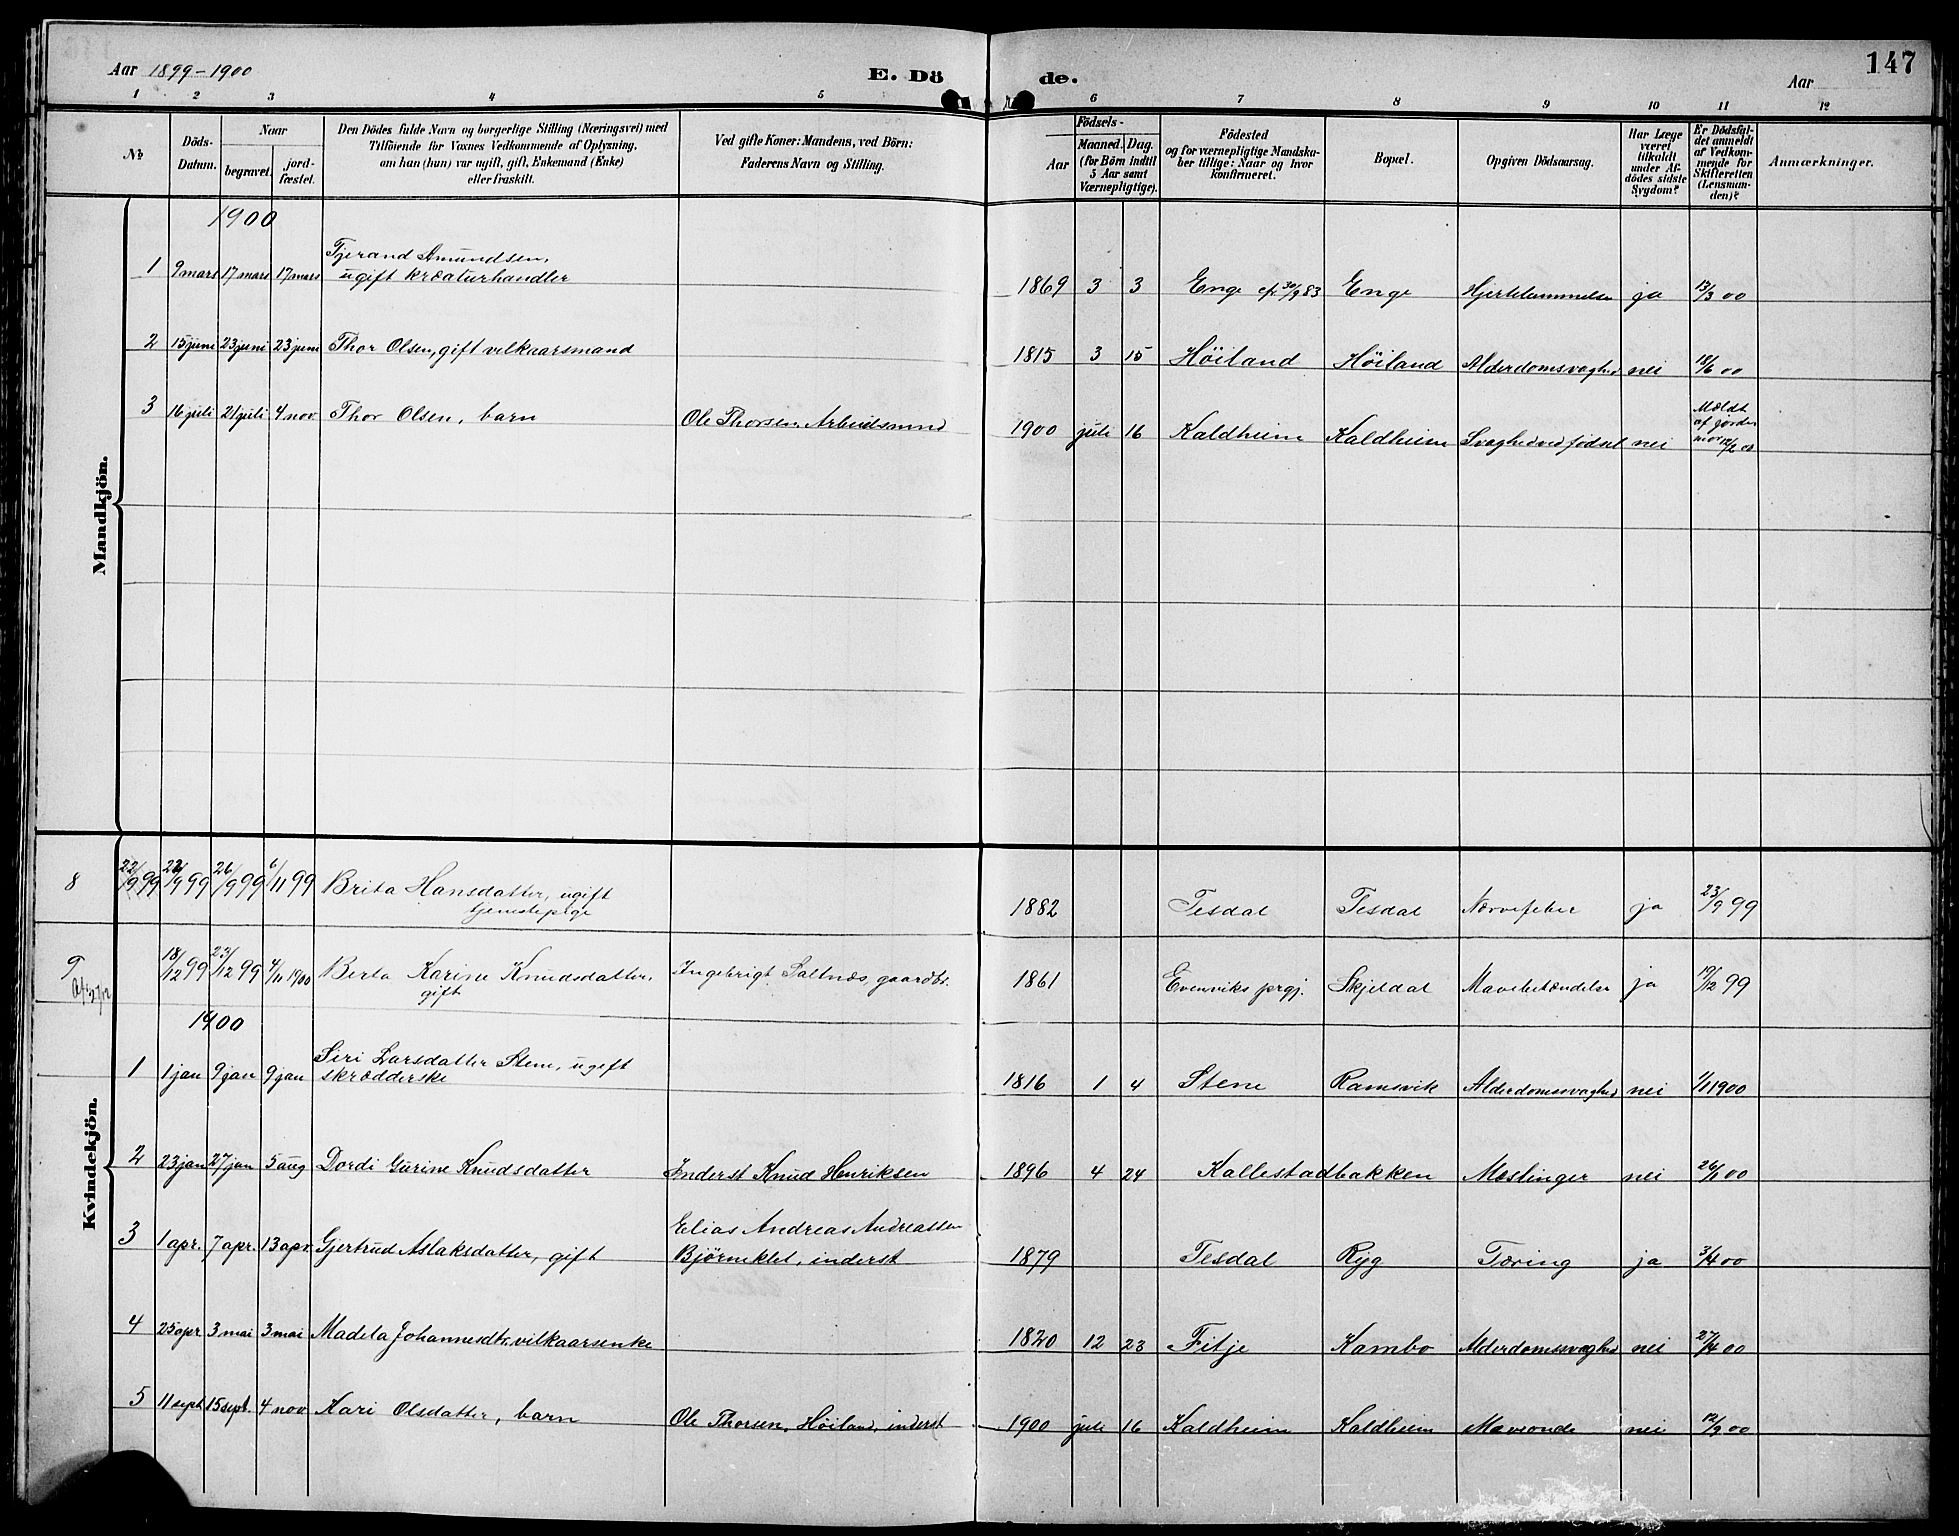 147
Aar 1899-1900 E. Dö de. Aar
1 2 3 4 5 6 7 8 9 10 11 12
№
Döds-
Datum.
Naar
begravet.
jord-
fæstet.
Den Dödes fulde Navn og borgerlige Stilling (Næringsvei) med
Tilföiende for Voxnes Vedkommende af Oplysning,
om han (hun) var ugift, gift, Enkemand (Enke)
eller fraskilt.
Ved gifte Koner: Mandens, ved Börn:
Faderens Navn og Stilling.
Födsels-
Aar
Maaned. Dag.
(for Börn indtil
5 Aar samt
Værnepligtige).
Födested
og for værnepligtige Mandska-
ber tillige: Naar og hvor
konfirmeret.
Bopæl.
Opgiven Dödsaarsag.
Har Læge
været
tilkaldt
under Af-
dödes sidste
Sygdom?
Er Dödsfal-
det anmeldt
af Vedkom-
mende for
Skifteretten
(Lensman-
den)?
Anmærkninger.
Mandkjön.
1900
Tjerand Amundsen,
1 9 mars 17 mars 17 mars ugift kræaturhandler 1869 3 3 Enge cf. 30/9 83 Enge Hjertelammelse ja 13/3 00
2 15 juni 23 juni 23 juni Thor Olsen, gift vilkaarsmand 1815 3 15 Höiland Höiland Alderdomsvaghed nei 18/6 00
3 16 juli 21 juli 4 nov Thor Olsen, barn Ole Thorsen, Arbeidsmnd 1900 juli 16 Kaldheim Kaldheim Svaghed ved fødsel nei Mældt
af jorder
mor
Kvindekjön.
8 22/9 99 22/9 99 26/9 99 6/11 99 Brita Hansdatter, ugift
tjenestepige 1882 Tesdal Tesdal Nervefeber ja 23/9 99
9 18/12 99 23/12 99 4/11 1900 Berta Karine Knudsdatter, Ingebrigt Saltnæs, gaardbr.
gift 1861 Evenviks prgj. Skjeldal Mavebetændelse ja 19/12 99
1900
Siri Larsdatter Stene, ugift
1 1 jan 9 jan 9 jan skrædderske 1816 1 4 Stene Ramsvik Alderdomssvaghed nei 1/1 1900
2 23 jan 27 jan 5 aug Dordi Gurine Knudsdatter Inderst Knud Henriksen 1896 4 24 Kallestadbakken Mæslinger nei 26/1 00
Elias Andreas Andreassen
3 1 apr. 7 apr. 13 apr. Gjertrud Aslaksdatter, gift Bjørneklet, inderst 1879 Tesdal Ryg Tæring ja 3/4 00
4 25 apr 3 mai 3 mai Madela Johannesdtr. vilkaarsenke 1820 12 23 Fitje Kambo Alderdomssvaghed nei 27/4 00
5 11 sept 15 sept. 4 nov Kari Olsdatter, barn Ole Thorsen, Höiland, inderst 1900 juli 16 Kaldheim Kaldheim Maveonde nei 12/9 00